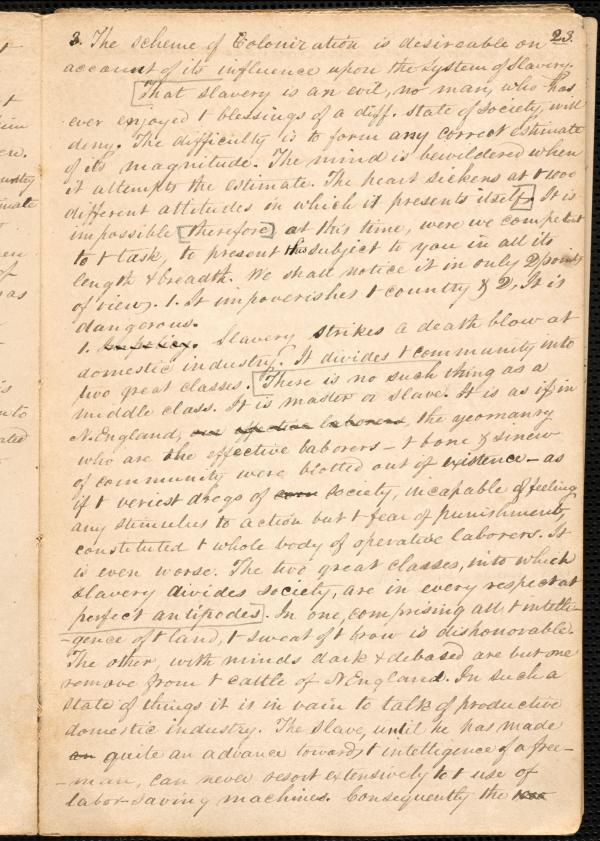 23.
3. The scheme of Colonization is desireable on
account of its influence upon the system of Slavery.
That slavery is an evil, no man, who has
ever enjoyed t blessings of a diff. state of society, will
deny. The difficulty is to form any correct estimate
of its magnitude. The mind is bewildered when
it attempts the estimate. The heart sickens at t 1000
different attitudes in which it presents itself. It is
impossible therefore at this time, were we competent
to t task, to present this subject to you in all its
length & breadth. We shall notice it in only 2 points
of view. 1. It impoverishes t country & 2. It is
dangerous.
1. Slavery strikes a death blow at
domestic industry. It divides t community into
two great classes. There is no such thing as a
middle class. It is master or slave. It is as if in
N. England, the yeomanry
who are the effective laborers – t bone & sinew
of community were blotted out of existence – as
if t veriest dregs of society, incapable of feeling
any stimulus to action but t fear of punishment,
constituted t whole body of operative laborers. It
is even worse. The two great classes, into which
slavery divides society, are in every respect at
perfect antipodes. In one, comprising all t intelli-
-gence of t land, t sweat of t brow is dishonorable.
The other, with minds dark & debased are but one
remove from t cattle of N England. In such a
state of things it is in vain to talk of productive
domestic industry. The slave, until he has made
an quite an advance towards t intelligence of a free-
-man, can never resort extensively to t use of
labor-saving machines. Consequently the